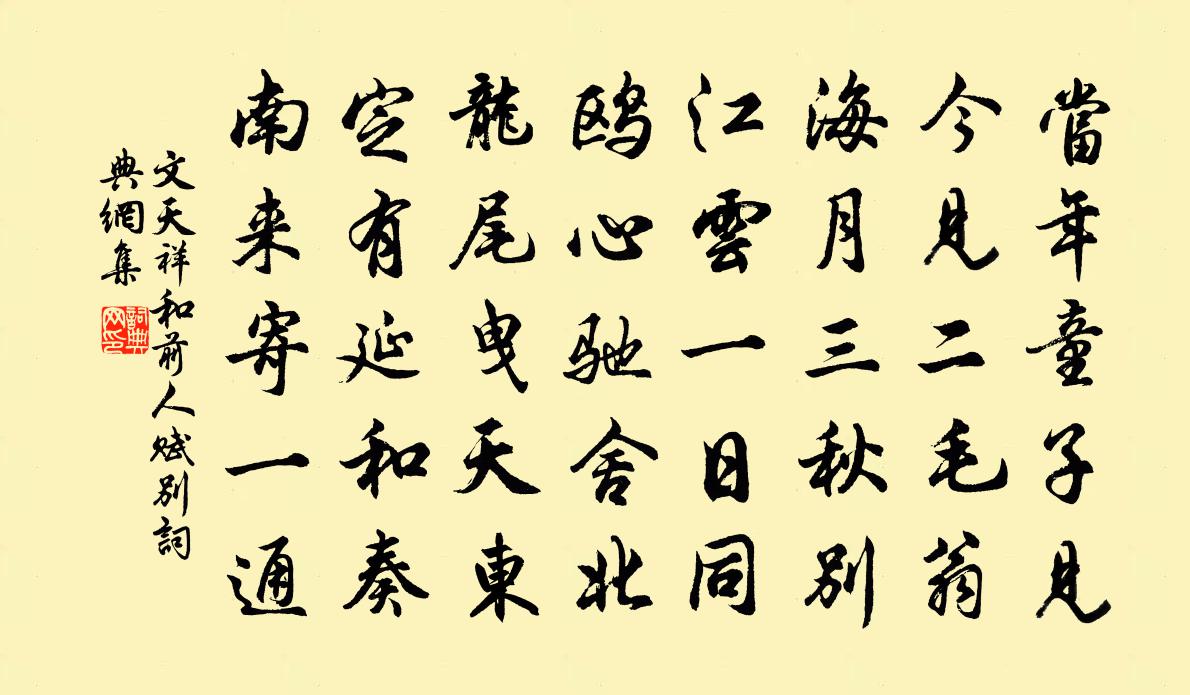 當年童子見
今見二毛翁
海月三秋別
江雲一日同
鸥心驰舍北
龍尾曳天東
定有延和奏
南来寄一通
文天祥和前人赋别詞
典網集
詞典网印